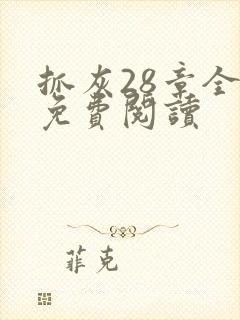 抓灰28章全
免費閱讀
菲克